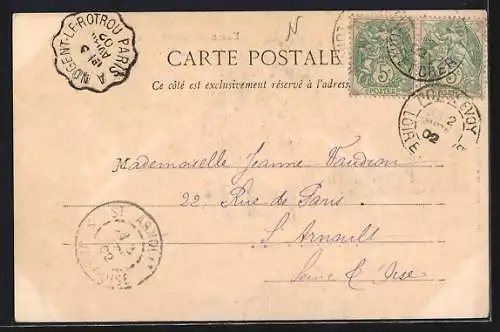 NOGENT-LE-ROTROU A PARIS
02
N
CARTE POSTALE
Ce côté est exclusivement réservé à l'adresse
5
POSTES
CHER
LOIR ET
2
02
Mademoiselle Jeanne Vaudion
22, Rue de Paris
St Arnoult
Seine & Oise
ST ARNOULT
02